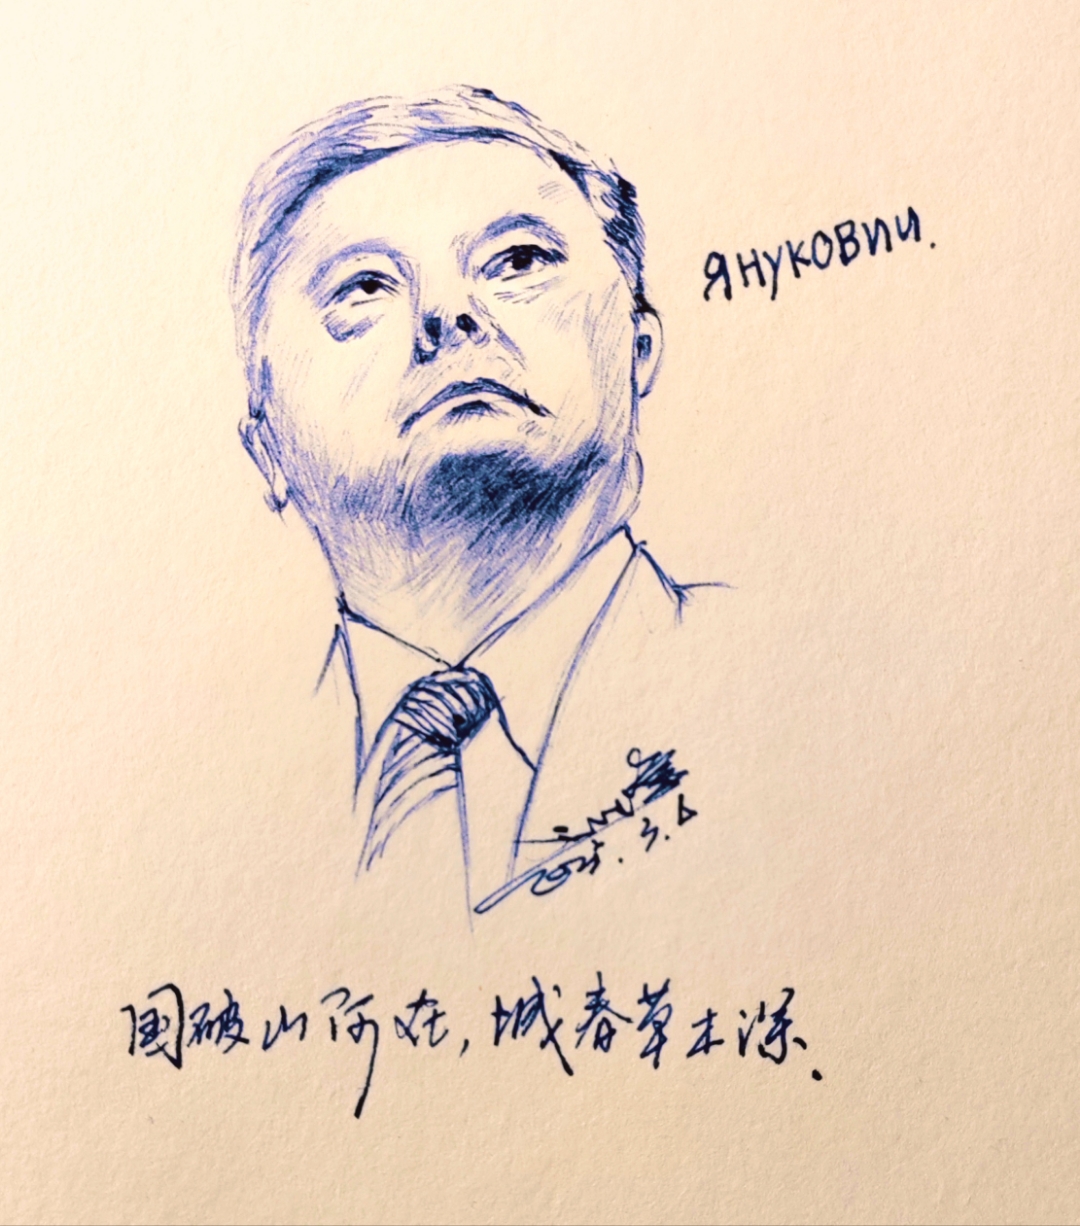 Янукович.
2025.3.6
国破山河在，城春草木深.